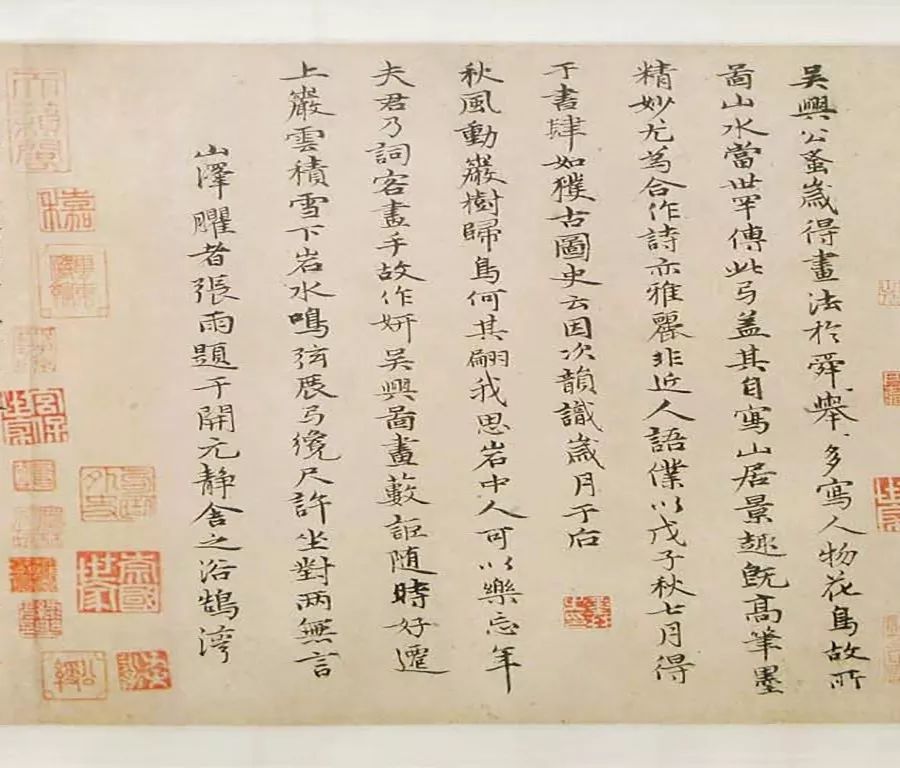 吳興公蚤歲得畫法於舜舉多寫人物花鳥故所
啚山水當世罕傳此弓盖其自寫山居景趣既高筆墨
精妙尤為合作詩亦雅麗非近人語僕以戊子秋七月得
于書肆如穫古圖史云因次韻識歲月于后
秋風動巖樹歸鳥何其翩我思岩中人可以樂忘年
夫君乃詞客畫手故作妍吳興啚畫藪詎随時好遷
上巖雲積雪下岩水鳴弦展弓纔尺許坐對两無言
山澤臞者張雨題于開元靜舍之浴鵠灣